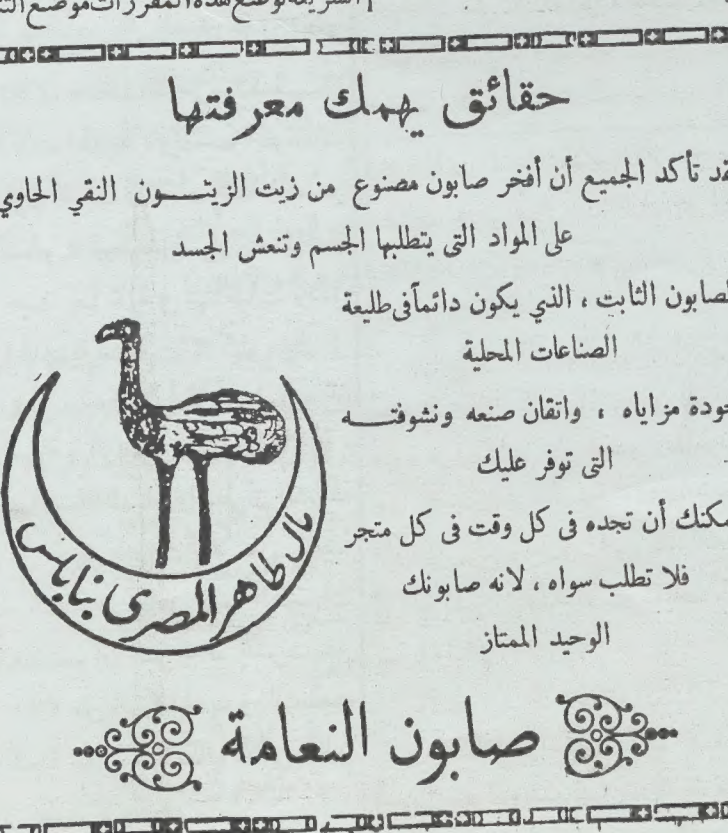 الشريفة لوضع هذه المقررات موضع
حقائق يهمك معرفتها
تأكد الجميع أن أفخر صابون مصنوع من زيت الزيتـــون النقي الحاوي
على المواد التى يتطلبها الجسم وتنعش الجسد
الثابت ، الذي يكون دائماً فى طليعة
الصناعات المحلية
مزاياه ، واتقان صنعه ونشوفتـــه
التى توفر عليك
أن تجده فى كل وقت فى كل متجر
فلا تطلب سواه ، لانه صابونك
الوحيد الممتاز
مال طاهر المصرى بنابلس
صابون النعامة